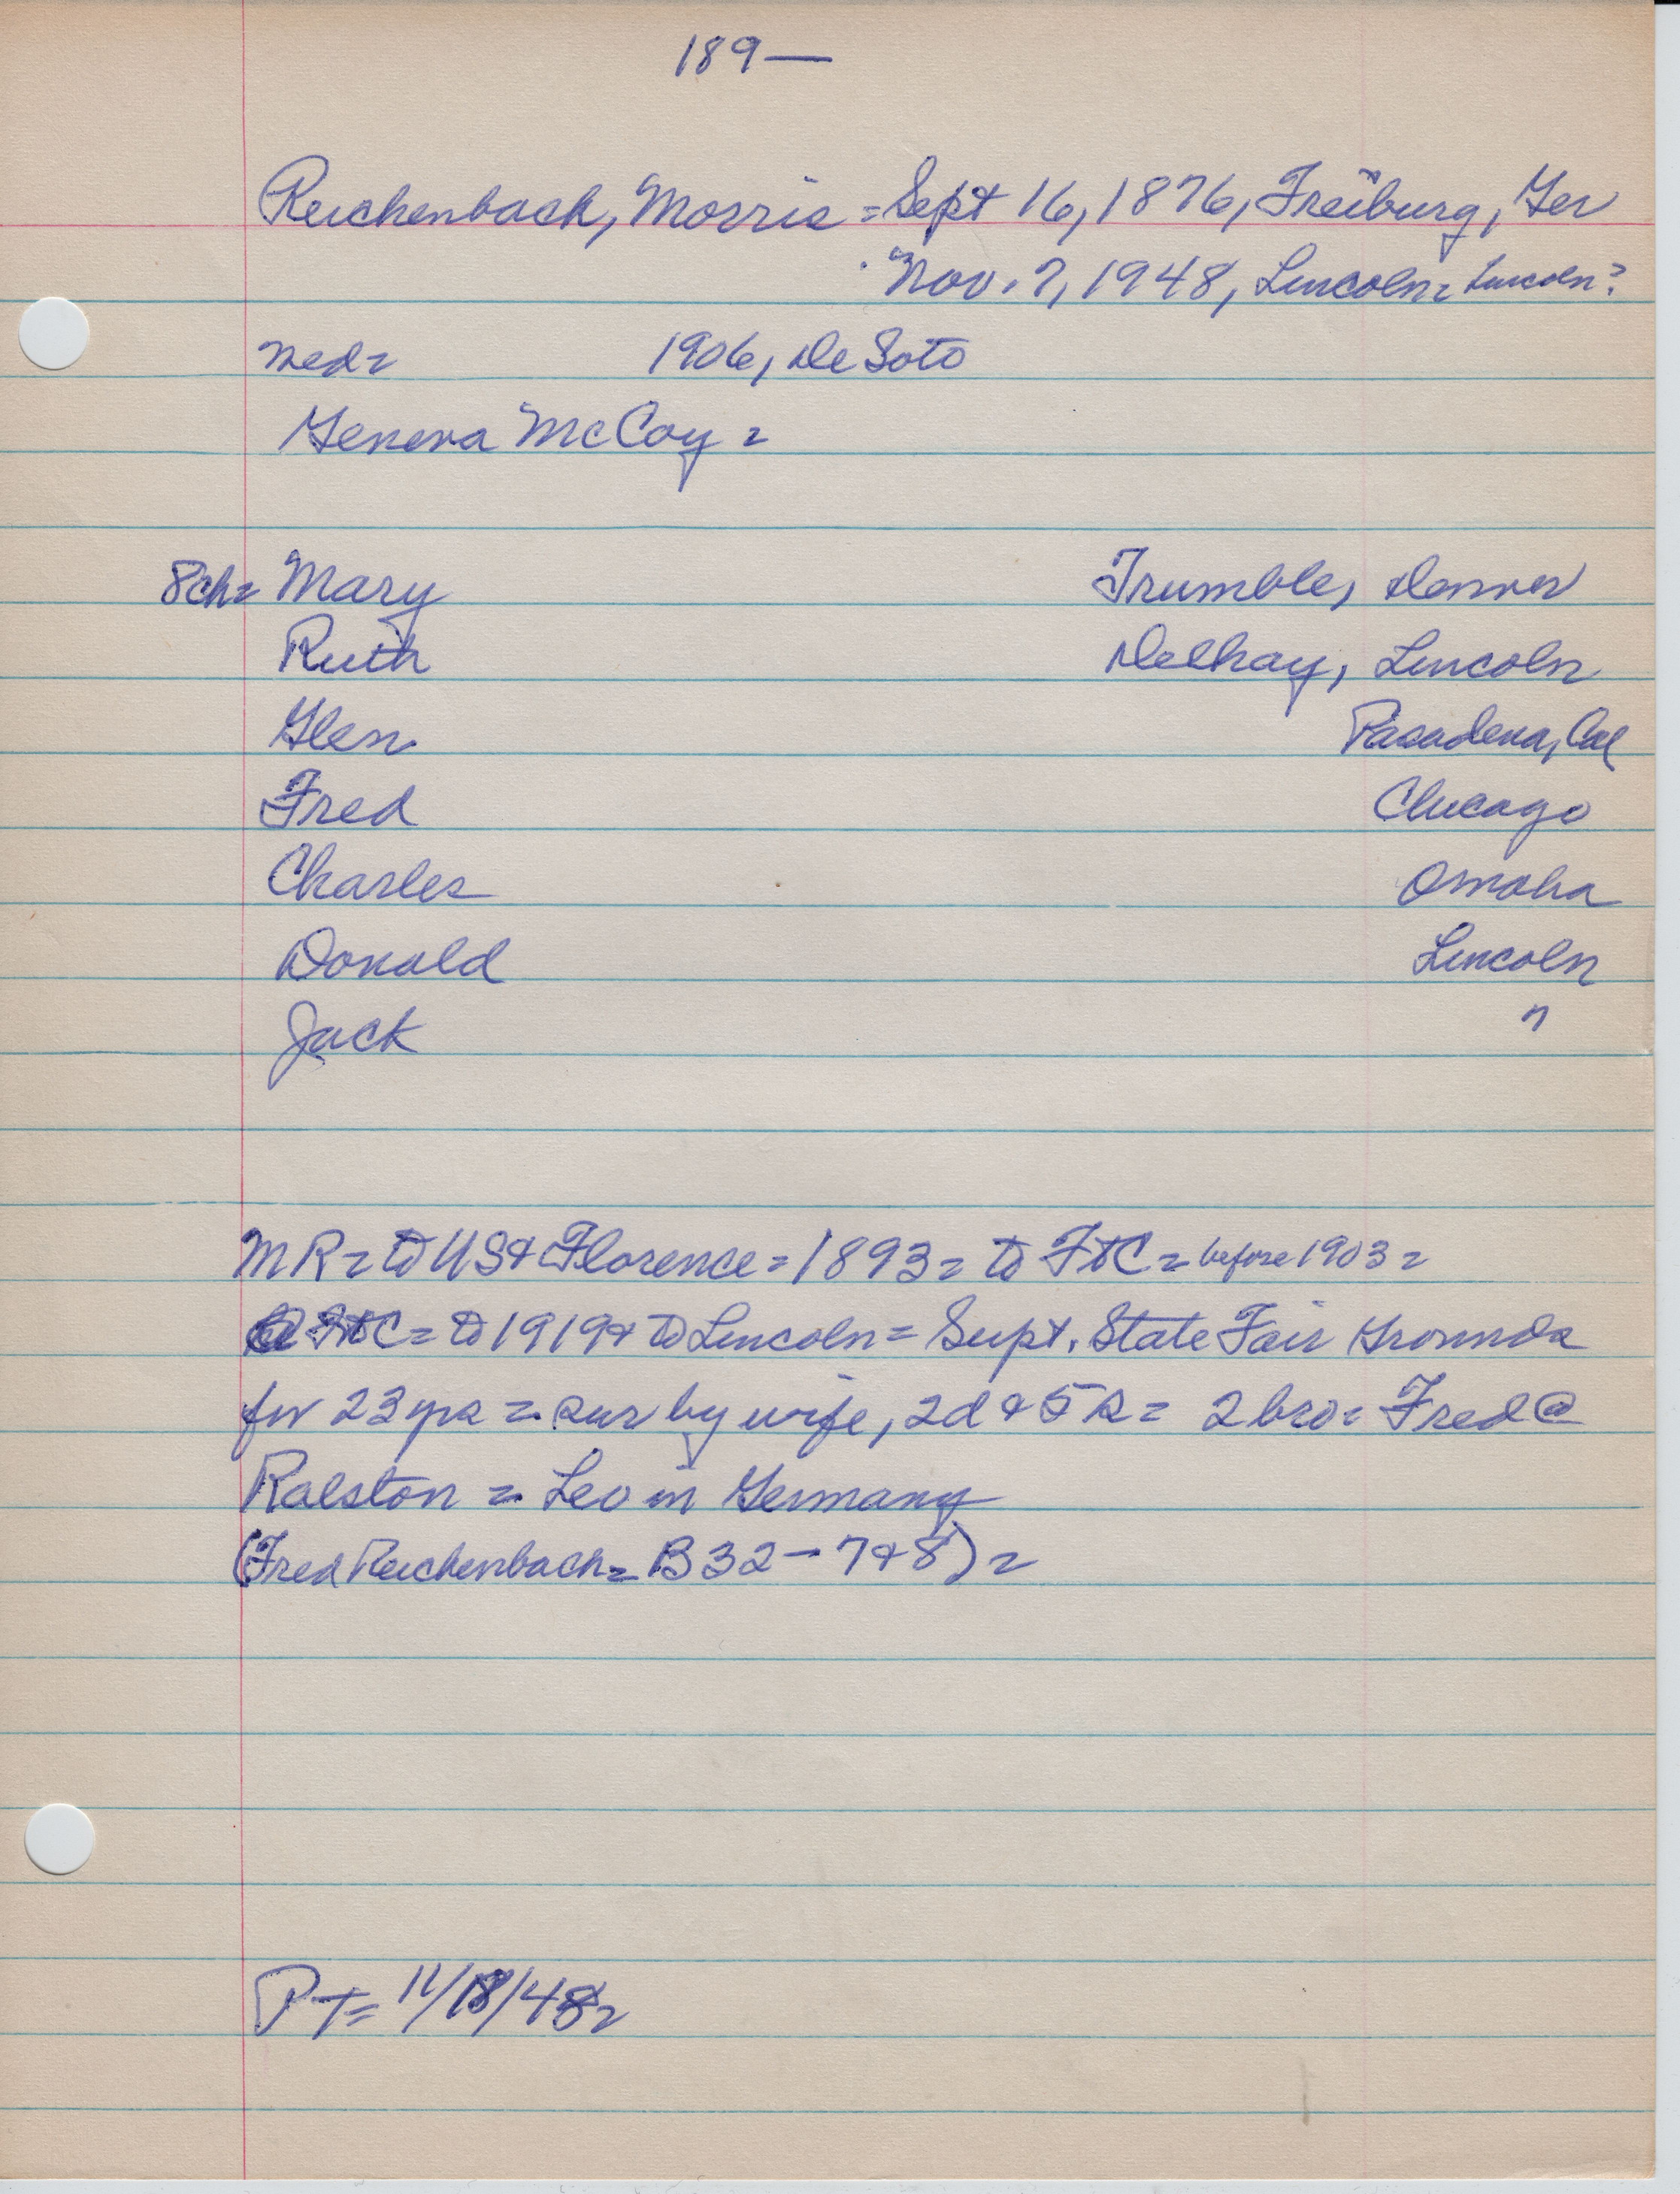 189—
Reichenbach, Morris = Sept 16, 1876, Freiburg, Ger
Nov. 7, 1948, Lincoln = Lincoln?
med = 1906, DeSoto
Geneva McCoy =
8ch = Mary Trumble, Denver
Ruth Delhay, Lincoln
Glen Pasadena, Cal
Fred Chicago
Charles Omaha
Donald Lincoln
Jack "
MR = to US & Florence = 1893 = to FtC = before 1903 =
@ FtC = to 1919 & to Lincoln = Supt. State Fair Grounds
for 23 yrs = sur by wife, 2d & 5s = 2 bro = Fred @
Ralston = Leo in Germany
(Fred Reichenbach = B32 - 7 & 8) =
PT = 11/18/48 =